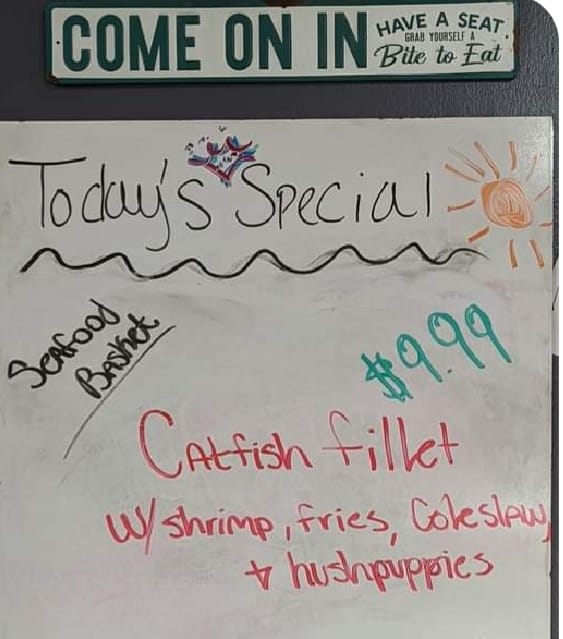 COME ON IN
HAVE A SEAT
GRAB YOURSELF A
Bite to Eat
Today's Special
Seafood
Basket
$9.99
Catfish fillet
w/ shrimp, fries, Coleslaw,
+ hushpuppies